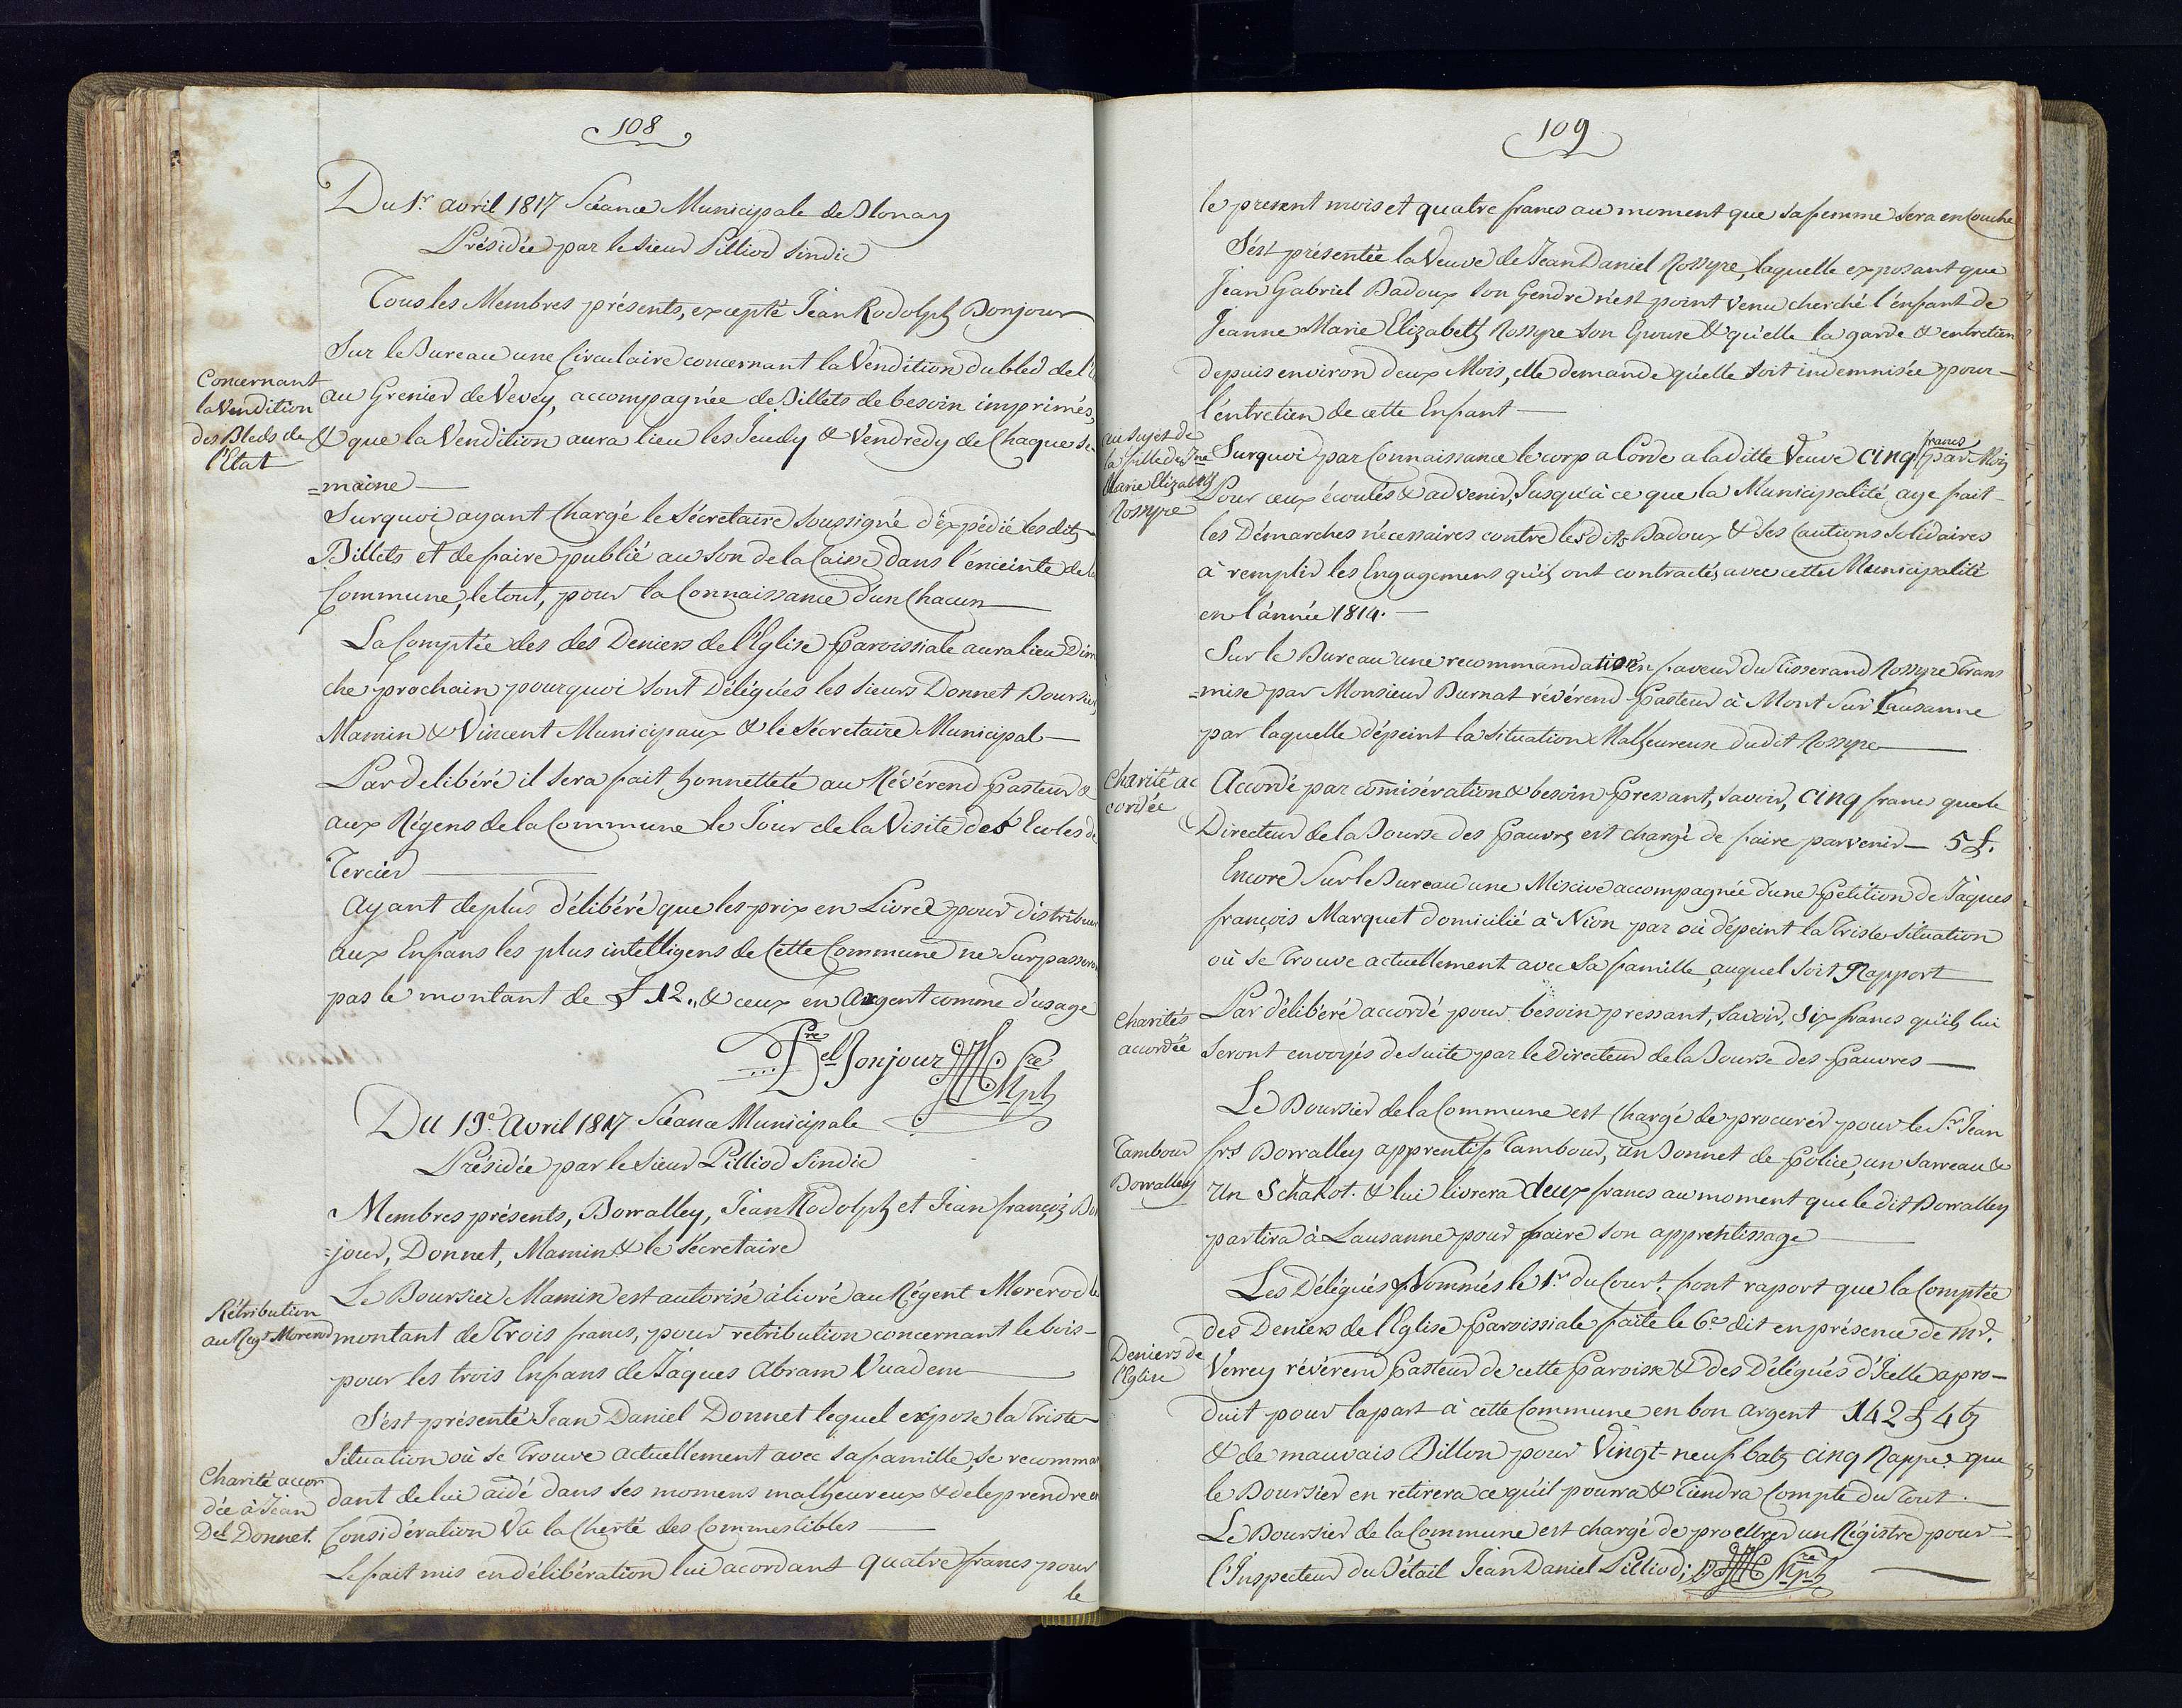 108
Du 1r. avril 1817 Séance Municipale de Blonay
Présidée par le Sieur Pilliod Sindic
Tous les Membres présents, excepté Jean Rodolph Bonjour
Concernant
la Vendition
des Bleds de
l'Etat
Sur le Bureau une Circulaire concernant la Vendition du bled de l'
au Grenier de Vevey, accompagnée de Billets de besoin imprimés,
& que la Vendition aura lieu les Jeudy & Vendredy de Chaque Se-
=maine —
Surquoi ayant Chargé le Sécretaire Soussigné d'éxpédié les dits
Billets et de faire publié au Son de la Caisse dans l'enceinte de la
Commune, le tout, pour la Connaissance d'un Chacun —
La Comptée des des Deniers de l'Eglise Paroissiale aura lieu Dim
che prochain pourquoi sont Délégués les Sieurs Donnet Boursier,
Mamin & Vincent Municipaux & le Sécretaire Municipal —
Par delibéré il sera fait honnetteté au Révérend Pasteur &
aux Régens de la Commune le Jour de la Visite des Ecoles de
Tercier —
Ayant de plus délibéré que les prix en Livres pour distribuer
aux Enfans les plus intelligens de Cette Commune ne Surpasseron
pas le montant de £ 12.,, & ceux en Argent comme d'usage
Bonjour
Du 19e. Avril 1817 Séance Municipale
Présidée par le Sieur Pilliod Sindic
Membres présents, Borralley, Jean Rodolph et Jean françois Bon
=jour, Donnet, Mamin & le Sécretaire
Rétribution
au Regt. Morerod
Le Boursier Mamin est autorisé à livré au Régent Morerod le
montant de Trois francs, pour retribution concernant le bois —
pour les trois Enfans de Jâques Abram Vuadens —
Charité accor
dée à Jean
Del. Donnet.
S'est présenté Jean Daniel Donnet lequel expose la Triste
Situation où se trouve actuellement avec sa famille, se recomman
dant de lui aidé dans ses momens malheureux & de le prendre en
Considération Vû la Cherté des Commestibles —
Le fait mis en délibération lui acordant quatre francs pour
le
109
le present mois et quatre francs au moment que sa femme sera en Couche
S'ést présentée la Veuve de Jean Daniel Rossyre, laquelle exposant que
Jean Gabriel Badoux son Gendre n'est point venu cherché l'enfant de
Jeanne Marie Elizabeth Rossyre son Epouse & qu'elle la garde & entretien
depuis environ deux Mois, elle demande qu'elle soit indemnisée pour —
l'éntretien de cette Enfant —
au Sujet de
la fille de Jne
Marie Elizabeth
Rossyre
Surquoi par Connaissance le corp a Corde a la ditte Veuve cinq francs par Mois
Pour ceux écoulés & advenir, Jusqu'à ce que la Municipalité aye fait —
les Démarches nécessaires contre les dits Badoux & ses Cautions Solidaires
à remplir les Engagemens qu'ils ont contractés avec cette Municipalité
en l'année 1814. —
Sur le Bureau une recommandation en faveur du Tisserand Rossyre Trans
=mise par Monsieur Burnat révérend Pasteur à Mont Sur Lausanne
par laquelle dépeint la situation Malheureuse dudit Rossyre —
Charité ac
cordée
Accordé par comisération & besoin Pressant, savoir, cinq francs que le
Directeur de la Bourse des Pauvres est chargé de faire parvenir — 5 £.
Encore Sur le Bureau une Missive accompagnée d'une Pétition de Jâques
françois Marquet domicilié à Nion par où dépeint la triste situation
où se trouve actuellement avec sa famille, auquel soit Rapport —
Charités
accordée
Par délibéré accordé pour besoin pressant, savoir, six francs qu'ils lui
seront envoyés de suite par le Directeur de la Bourse des Pauvres —
Tambour
Borralley
Le Boursier de la Commune est Chargé de procurér pour le Sr. Jean
frs. Borralley apprentif Tambour, un Bonnet de Police, un sarreau &
un Schakot. & lui livrera deux francs au moment que le dit Borralley
partira à Lausanne pour faire son apprentissage —
Les Délégués Nommés le 1r. du Court. font raport que la Comptée
Deniers de
l'Eglise
des Deniers de l'Eglise Paroissiale faite le 6e. dit en présence de Mr.
Verrey révérend Pasteur de cette Paroisse & des Délégués d'Icelle a pro—
duit pour la part à cette Commune en bon argent 142 £ 4 bz
& de mauvais Billon pour Vingt-neuf batz cinq Rappes que
le Boursier en retirera ce qu'il pourra & Tiendra Compte du Tout. —
Le Boursier de la Commune est chargé de procurer un Régistre pour —
l'Inspecteur du Bétail Jean Daniel Pilliod,